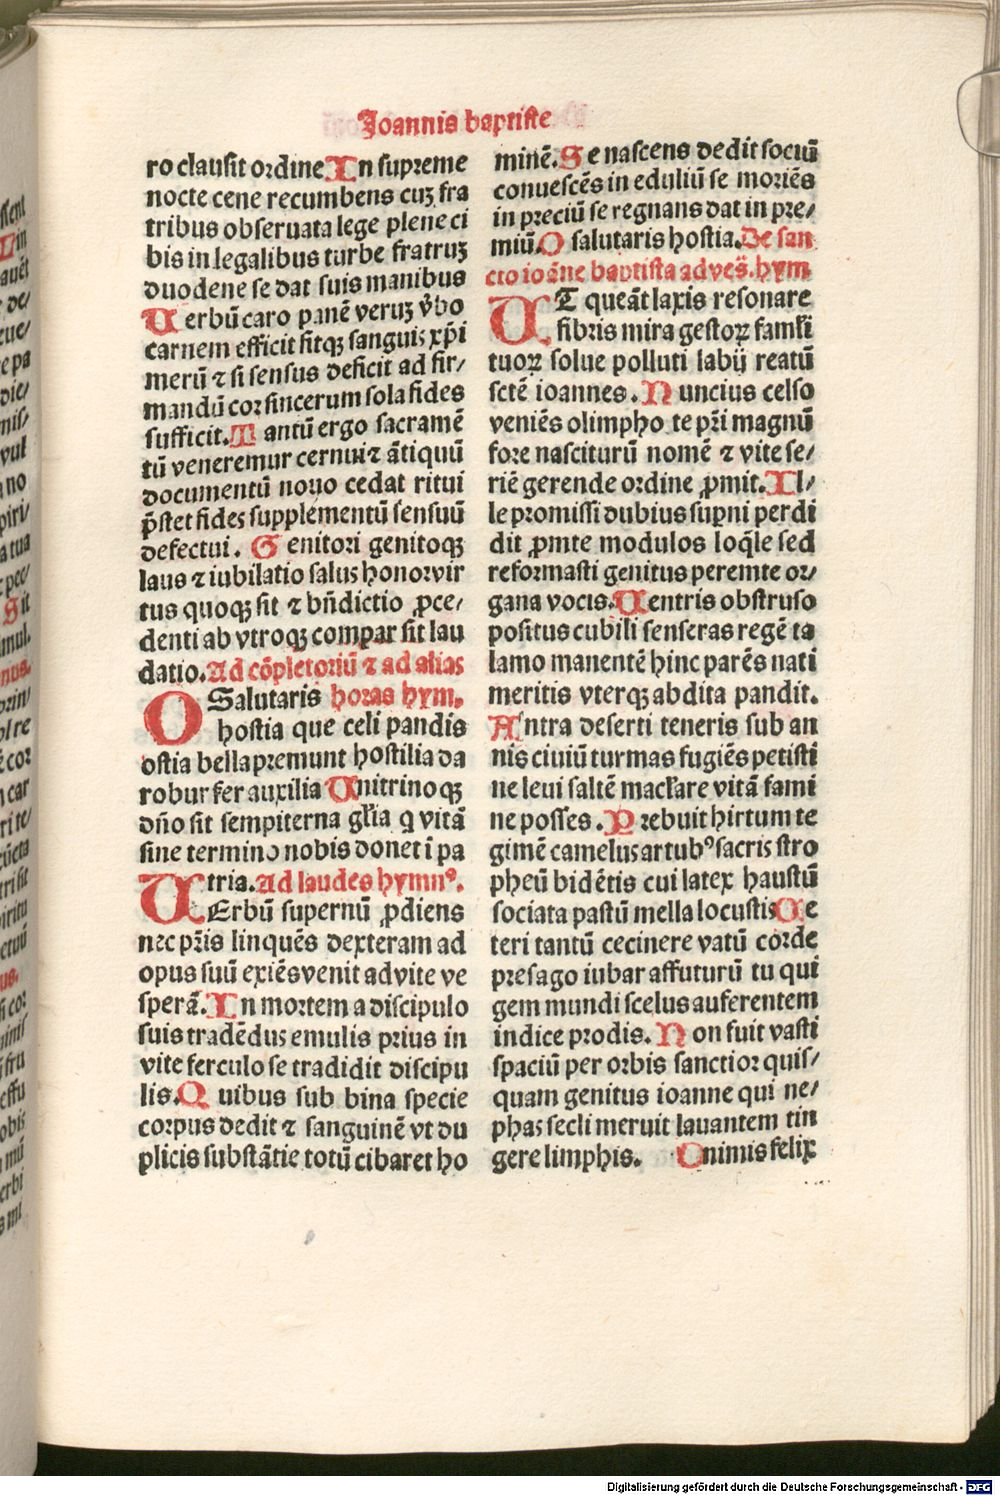 Joannis baptiste
ro clausit ordine In supreme
nocte cene recumbens cuȝ fra
tribus obseruata lege plene ci
bis in legalibus turbe fratruȝ
duodene se dat suis manibus
Uerbū caro panē veruȝ v̄bo
carnem efficit fitqȝ sanguis xp̄i
merū ⁊ si sensus deficit ad fir/
mandū cor sincerum sola fides
sufficit. Tantū ergo sacramē
tū veneremur cernui ⁊ ātiquū
documentū nouo cedat ritui
p̄stet fides supplementū sensuū
defectui. Genitori genitoqȝ
laus ⁊ iubilatio salus honor vir
tus quoqȝ sit ⁊ bn̄dictio ꝓce/
denti ab vtroqȝ compar sit lau
datio. Ad cōpletoriū ⁊ ad alias
O Salutaris horas hym.
hostia que celi pandis
ostia bella premunt hostilia da
robur fer auxilia Unitrinoqȝ
dn̄o sit sempiterna gl̄ia q vitā
sine termino nobis donet ī pa
tria. Ad laudes hymnꝰ.
UErbū supernū ꝓdiens
nec pr̄is linquēs dexteram ad
opus suū exiēs venit ad vite ve
sperā. In mortem a discipulo
suis tradēdus emulis prius in
vite ferculo se tradidit discipu
lis. Quibus sub bina specie
corpus dedit ⁊ sanguinē vt du
plicis substātie totū cibaret ho
minē. Se nascens dedit sociū
conuescēs in eduliū se moriēs
in preciū se regnans dat in pre/
miū. O salutaris hostia. De san
cto ioāne baptista ad ves̄. hym
UT queāt laxis resonare
fibris mira gestoꝝ famł̄i
tuoꝝ solue polluti labij reatū
sctē ioannes. Nuncius celso
veniēs olimpho te pr̄i magnū
fore nasciturū nomē ⁊ vite se/
riē gerende ordine ꝓmit. Il/
le promissi dubius supn̄i perdi
dit ꝓmte modulos loq̄le sed
reformasti genitus peremte or/
gana vocis. Uentris obstruso
positus cubili senseras regē ta
lamo manentē hinc parēs nati
meritis vterqȝ abdita pandit.
Antra deserti teneris sub an
nis ciuiū turmas fugiēs petisti
ne leui saltē maclare vitā fami
ne posses. Prebuit hirtum te
gimē camelus artubꝰ sacris stro
pheū bidētis cui latex haustū
sociata pastū mella locustis Ce
teri tantū cecinere vatū corde
presago iubar affuturū tu qui
gem mundi scelus auferentem
indice prodis. Non fuit vasti
spaciū per orbis sanctior quis/
quam genitus ioanne qui ne/
phas secli meruit lauantem tin
gere limphis. Onimis felix
Digitalisierung gefördert durch die Deutsche Forschungsgemeinschaft - DFG